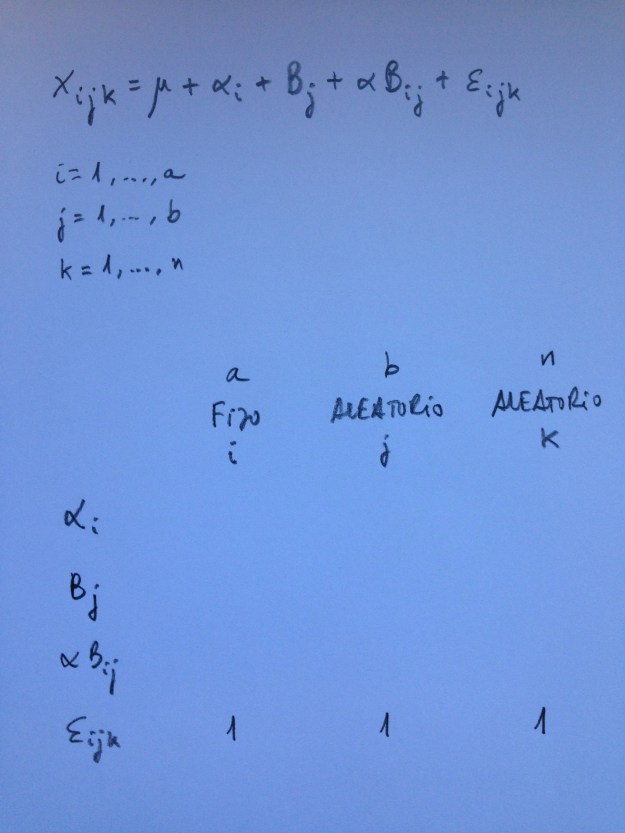 Xijk = μ + αi + Bj + αBij + εijk
i = 1, ..., a
j = 1, ..., b
k = 1, ..., n
a b n
Fijo ALEATORio ALEATORio
i j k
αi
Bj
αBij
εijk 1 1 1